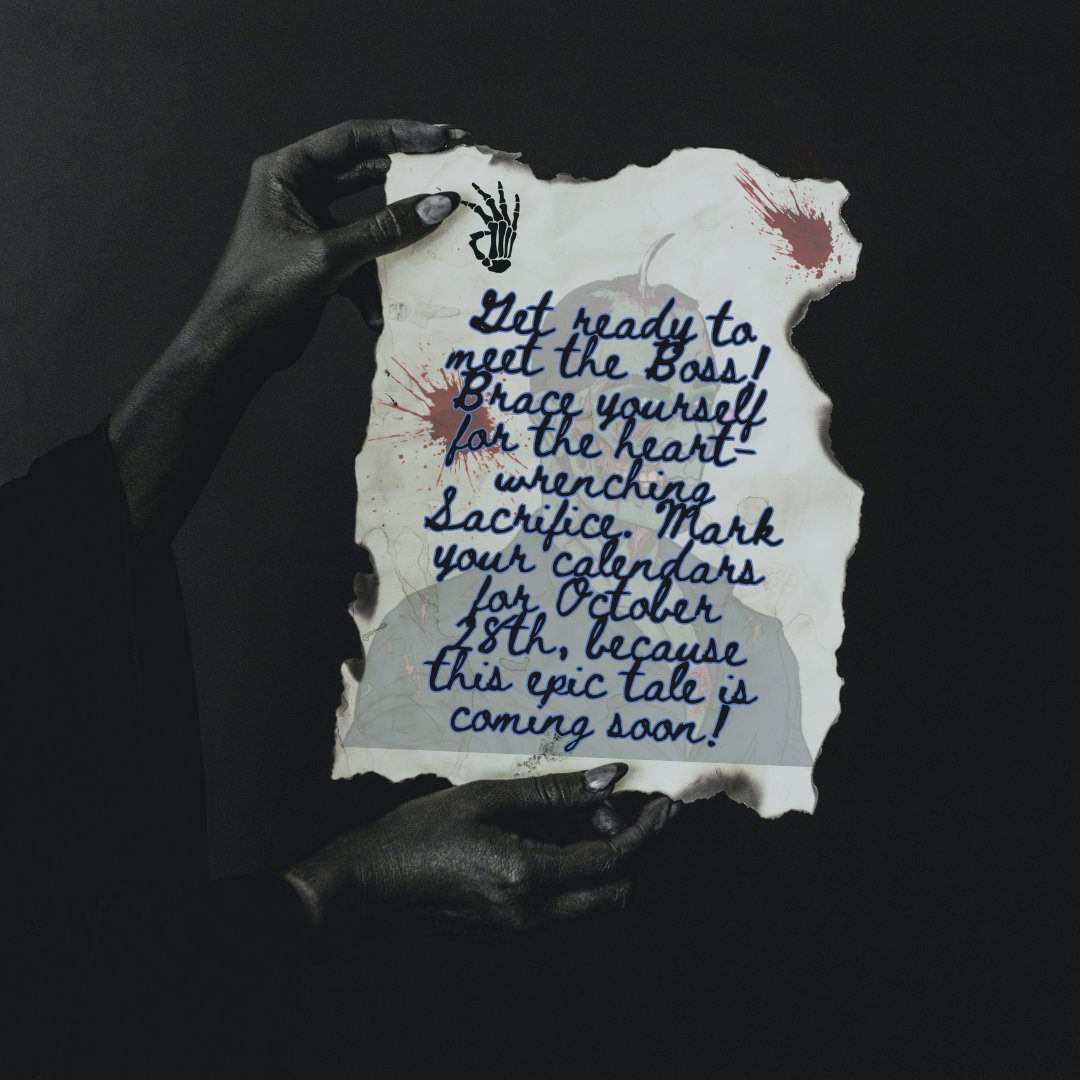 Get ready to
meet the Boss!
Brace yourself
for the heart-
wrenching
Sacrifice. Mark
your calendars
for October
28th, because
this epic tale is
coming soon!